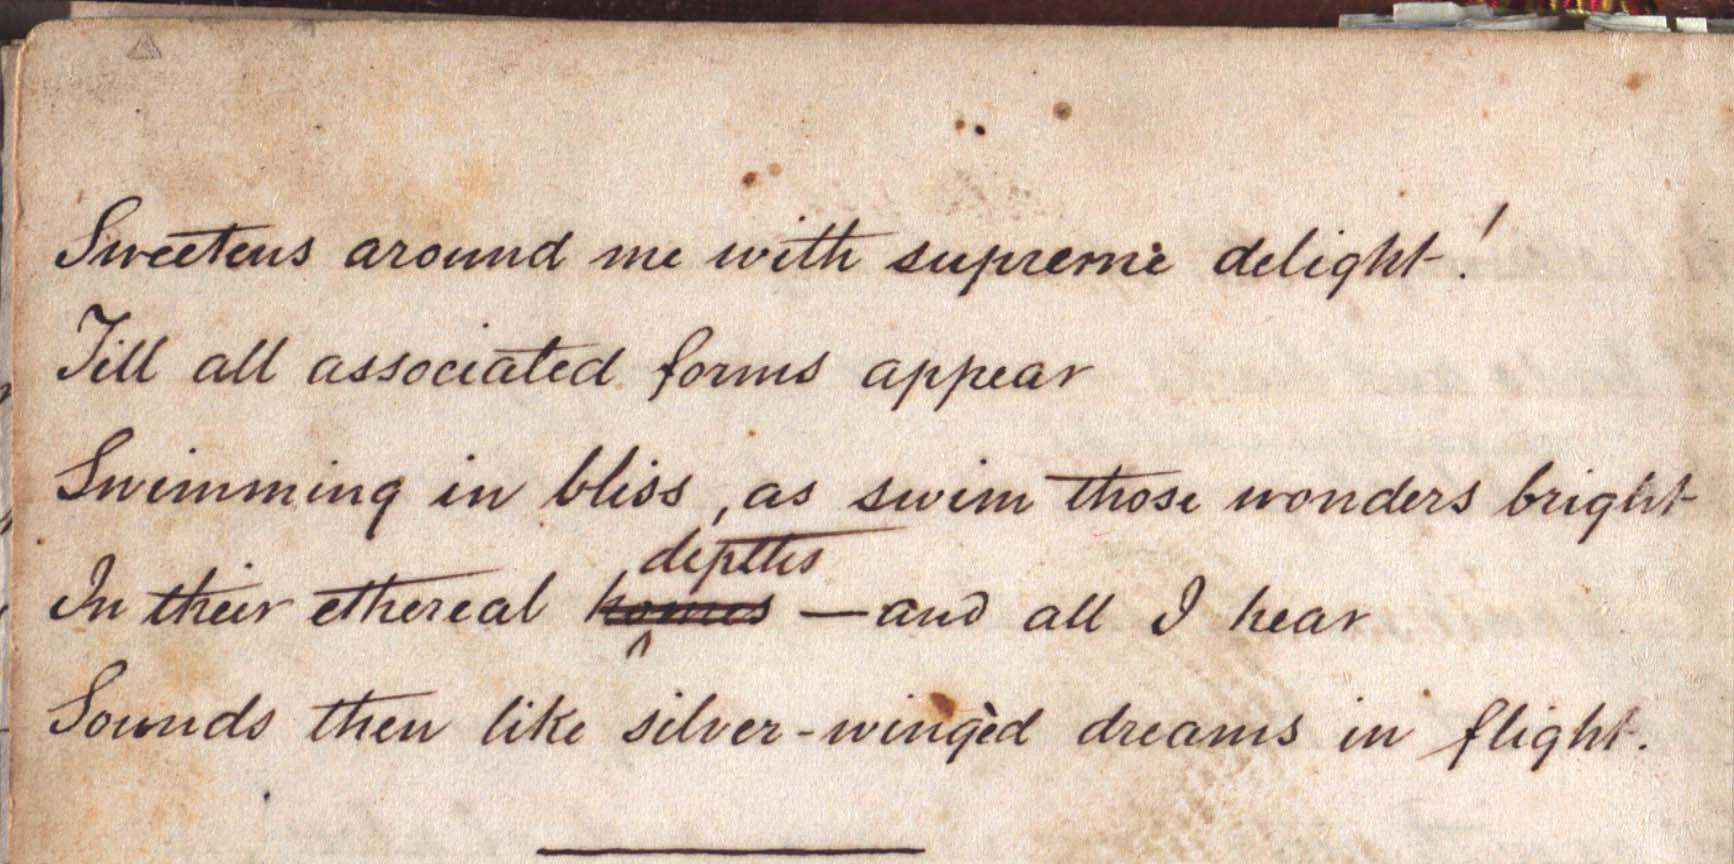 Sweetens around me with supreme delight!
Till all associated forms appear
Swimming in bliss, as swim those wonders bright
depths
In their ethereal homes — and all I hear
Sounds then like silver-wingèd dreams in flight.